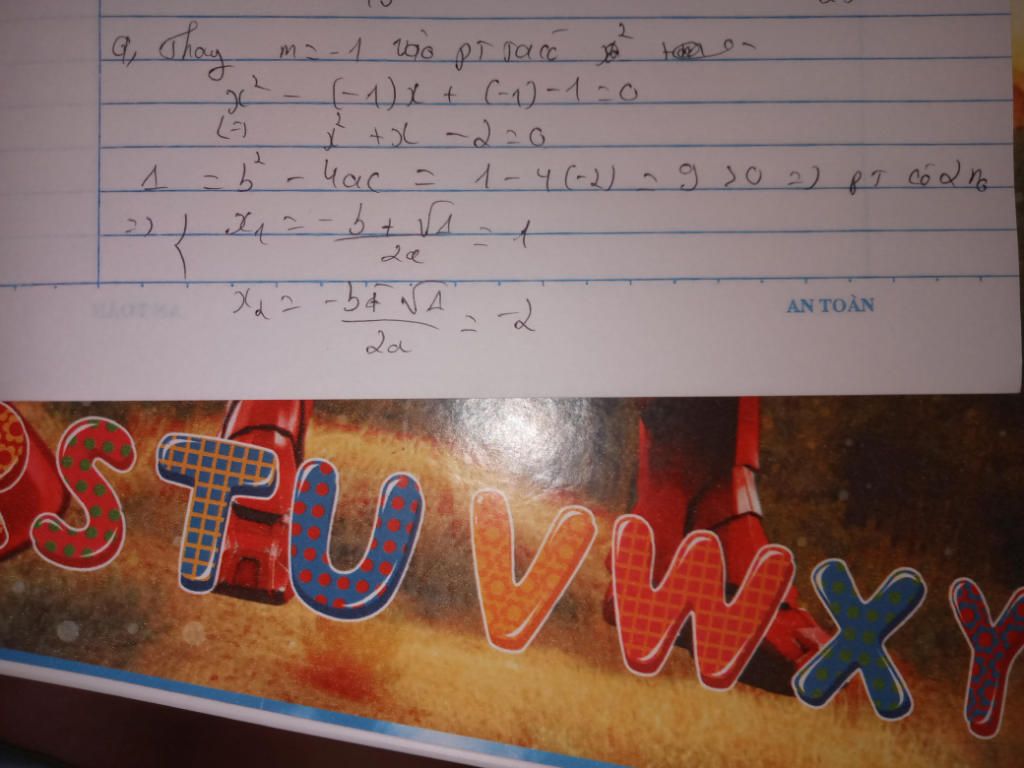 a, Thay m = -1 vào pt ta có x²
x² - (-1)x + (-1) - 1 = 0
(=) x² + x - 2 = 0
Δ = b² - 4ac = 1 - 4(-2) = 9 > 0 => pt có 2 no
=> { x₁ = (-b + √Δ)/2a = 1
x₂ = (-b - √Δ)/2a = -2
AN TOÀN
S T U V W X Y